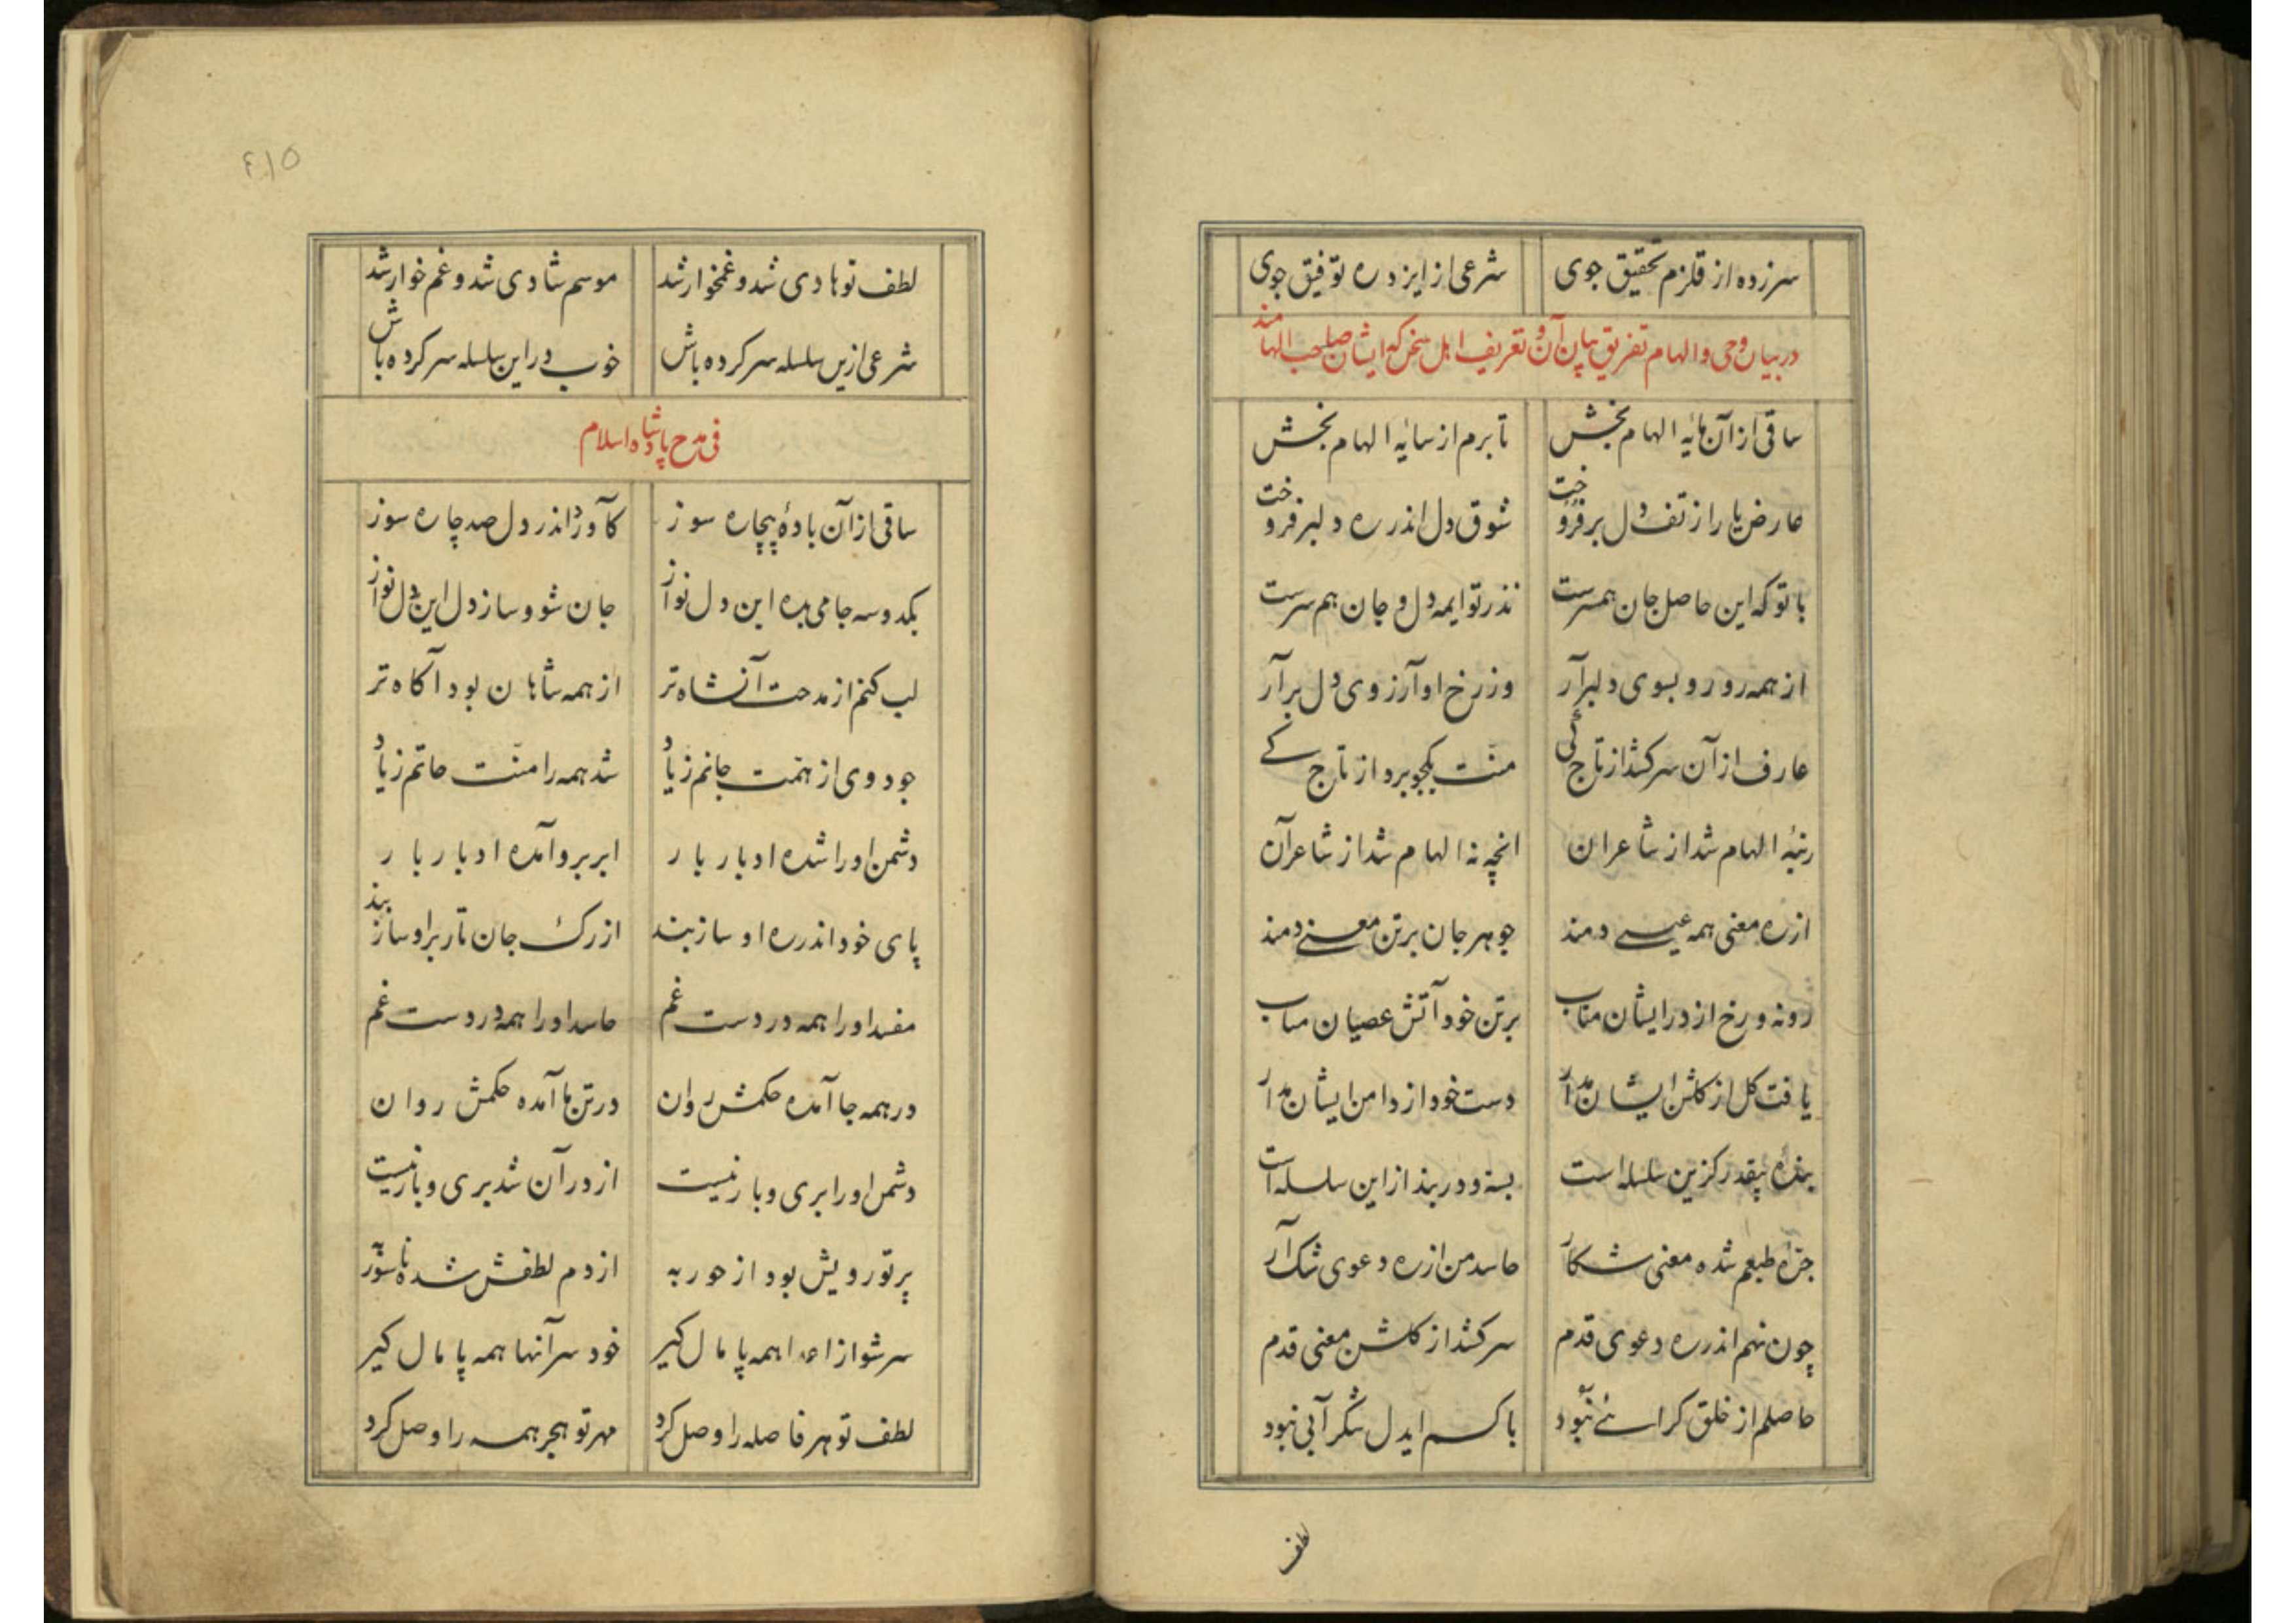 سرزده از قلزم تحقیق جوی شرعی از ایزد ره توفیق جوی
در بیان وحی و الهام تفریق میان آن و تعریف اهل سخن که ایشان صاحب الهامند
ساقی از آن مایه الهام بخش تا برم از سایه الهام بخش
عارض یار از تف دل برفروخت شوق دل اندر ره دلبر فروخت
با تو که این حاصل جان همسرست نذر تو ایمه دل و جان هم سرست
از همه رو رو بسوی دلبر آر وز رخ او آرزوی دل بر آر
عارف از آن سر کشد از تاج کی منت یکجو برد از تاج کے
رتبه الهام شد از شاعران انچه نه الهام شد از شاعر آن
از ره معنی همه عیسے دمند جوهر جان بر تن معنے دمند
رو نه و رخ از در ایشان متاب بر تن خود آتش عصیان متاب
یافت گل از گلشن ایشان مدار دست خود از دامن ایشان مدار
بنده بیقدر کزین سلسله است بسته و در بند از این سلسله است
جره طبعم شده معنی شکار حاسد من از ره دعوی شک آر
چون نهم اندر ره دعوی قدم سر کشد از گلشن معنی قدم
حاصلم از خلق کرا نبود با کسم ایدل شکرآبی نبود
لطف
۴۱۵
لطف تو هادی شد و غمخوار شد موسم شادی شد و غم خوار شد
شرعی ازین سلسله سرکرده باش خوب در این سلسله سر کرده باش
فی مدح پادشاه اسلام
ساقی از آن بادهٔ بیچاره سوز کآورد اندر دل صد چاره سوز
یکدو سه جامی بده این دل نواز جان شو و ساز دل این دل نواز
لب کنم از مدحت آنشاه تر از همه شاهان بود آگاه تر
جود وی از همت جانم زیاد شد همه را منت حاتم زیاد
دشمن او را شده ادبار بار ابر برو آمده ادبار بار
پای خود اندر ره او ساز بند از رگ جان تار برو ساز بند
مفسد او را همه در دست غم حاسد او را همه درد ست غم
در همه جا آمده حکمش روان در تن ما آمده حکمش روان
دشمن او را بری و بار نیست از در آن شد بری و بار نیست
پرتو رویش بود از حور به از دم لطفش شده
سر شو از اعدا همه پامال گیر خود سر آنها همه پامال گیر
لطف تو هر فاصله را وصل کرد مهر تو هجر همه را وصل کرد